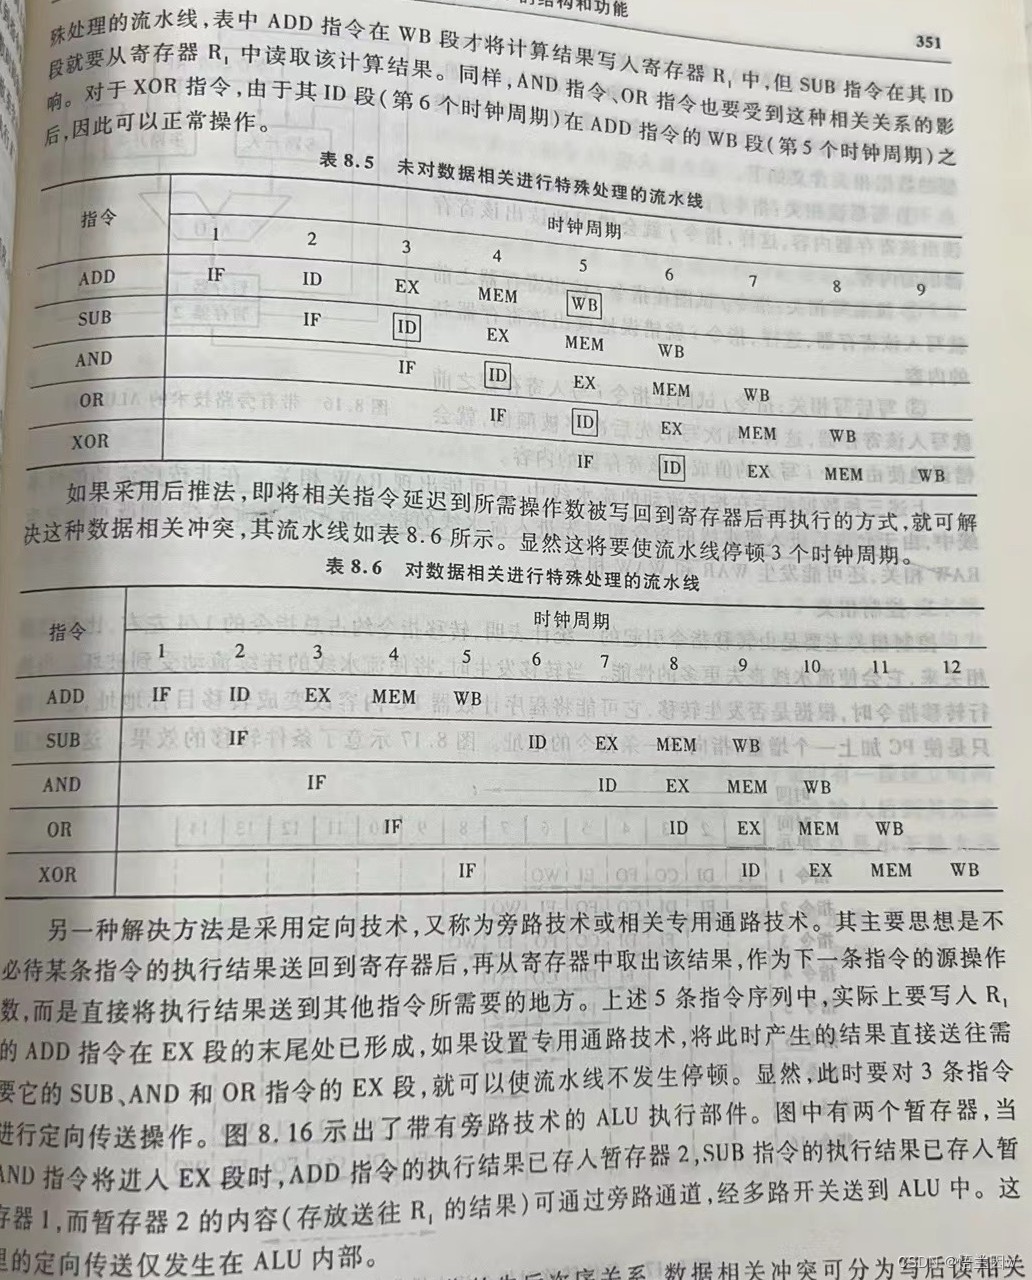 的结构和功能
351
殊处理的流水线,表中 ADD 指令在 WB 段才将计算结果写入寄存器 R₁ 中,但 SUB 指令在其 ID
段就要从寄存器 R₁ 中读取该计算结果。同样,AND 指令、OR 指令也要受到这种相关关系的影
响。对于 XOR 指令,由于其 ID 段(第 6 个时钟周期)在 ADD 指令的 WB 段(第 5 个时钟周期)之
后,因此可以正常操作。
表 8.5 未对数据相关进行特殊处理的流水线
指令 时钟周期
1 2 3 4 5 6 7 8 9
ADD IF ID EX MEM WB
SUB IF ID EX MEM WB
AND IF ID EX MEM WB
OR IF ID EX MEM WB
XOR IF ID EX MEM WB
如果采用后推法,即将相关指令延迟到所需操作数被写回到寄存器后再执行的方式,就可解
决这种数据相关冲突,其流水线如表 8.6 所示。显然这将要使流水线停顿 3 个时钟周期。
表 8.6 对数据相关进行特殊处理的流水线
指令 时钟周期
1 2 3 4 5 6 7 8 9 10 11 12
ADD IF ID EX MEM WB
SUB IF ID EX MEM WB
AND IF ID EX MEM WB
OR IF ID EX MEM WB
XOR IF ID EX MEM WB
另一种解决方法是采用定向技术,又称为旁路技术或相关专用通路技术。其主要思想是不
必待某条指令的执行结果送回到寄存器后,再从寄存器中取出该结果,作为下一条指令的源操作
数,而是直接将执行结果送到其他指令所需要的地方。上述 5 条指令序列中,实际上要写入 R₁
的 ADD 指令在 EX 段的末尾处已形成,如果设置专用通路技术,将此时产生的结果直接送往需
要它的 SUB、AND 和 OR 指令的 EX 段,就可以使流水线不发生停顿。显然,此时要对 3 条指令
进行定向传送操作。图 8.16 示出了带有旁路技术的 ALU 执行部件。图中有两个暂存器,当
AND 指令将进入 EX 段时,ADD 指令的执行结果已存入暂存器 2,SUB 指令的执行结果已存入暂
存器 1,而暂存器 2 的内容(存放送往 R₁ 的结果)可通过旁路通道,经多路开关送到 ALU 中。这
里的定向传送仅发生在 ALU 内部。
先后次序关系,数据相关冲突可分为写后读相关